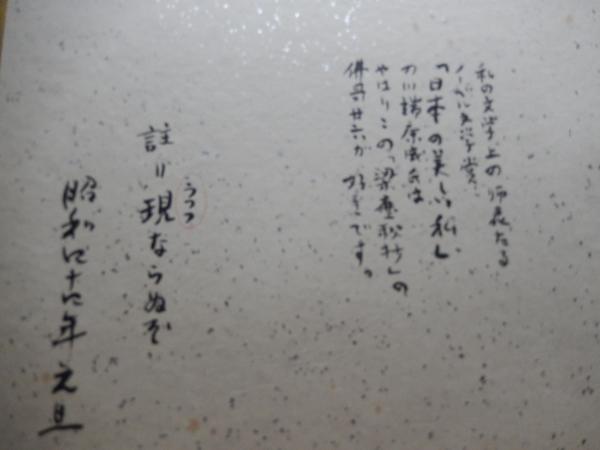 私の文学上の師表たる
ノーベル文学賞
「日本の美しい私」
の川端康成氏は
やはりこの「梁塵秘抄」の
廿六が好きです。
うつつ
註=現ならぬぞ
昭和四十四年元旦